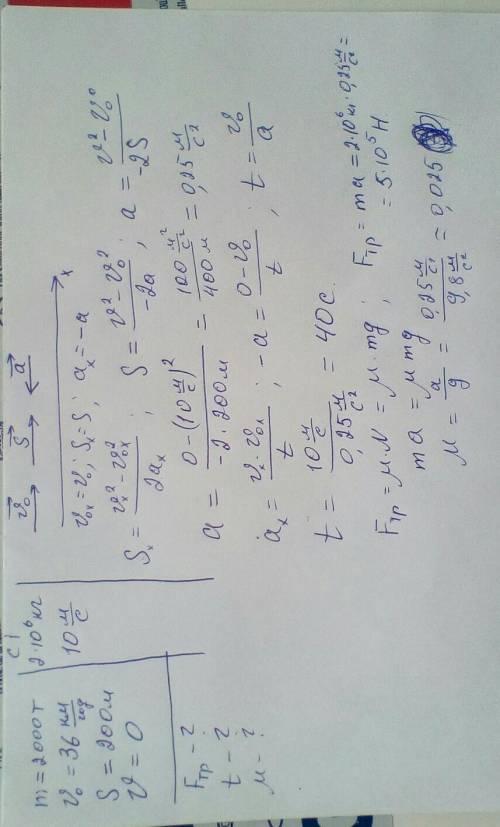 m = 2000т
v₀ = 36 км/год
S = 200м
v = 0
СІ
2·10⁶ кг
10 м/с
Fтр - ?
t - ?
μ - ?
v₀ S a
x
v₀ₓ = v₀; Sₓ = S; aₓ = -a
Sₓ = (vₓ² - v₀ₓ²)/(2aₓ); S = (v² - v₀²)/(-2a); a = (v² - v₀²)/(-2S)
a = (0 - (10 м/с)²)/(-2·200м) = (100 м²/с²)/(400 м) = 0,25 м/с²
aₓ = (vₓ · v₀ₓ)/t; -a = (0 - v₀)/t; t = v₀/a
t = (10 м/с)/(0,25 м/с²) = 40с.
Fтр = μ·N = μ·mg; Fтр = ma = 2·10⁶ кг·0,25 м/с² =
= 5·10⁵ Н
ma = μmg
μ = a/g = (0,25 м/с²)/(9,8 м/с²) = 0,025